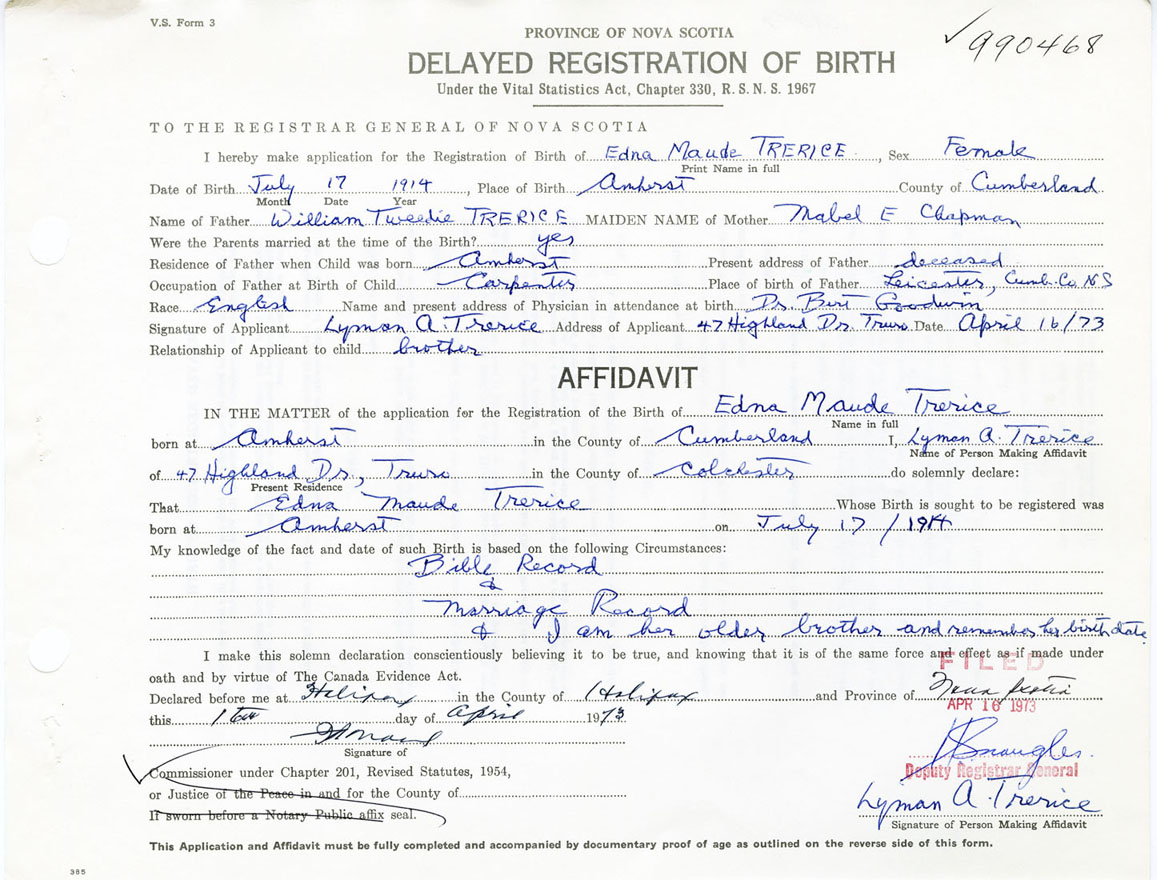 V.S. Form 3
990468
PROVINCE OF NOVA SCOTIA
DELAYED REGISTRATION OF BIRTH
Under the Vital Statistics Act, Chapter 330, R. S. N. S. 1967
TO THE REGISTRAR GENERAL OF NOVA SCOTIA
I hereby make application for the Registration of Birth of Edna Maude TRERICE, Sex Female
Print Name in full
Date of Birth July 17 1914, Place of Birth Amherst County of Cumberland
Month Date Year
Name of Father William Tweedie TRERICE MAIDEN NAME of Mother Mabel E Chapman
Were the Parents married at the time of the Birth? yes
Residence of Father when Child was born Amherst Present address of Father deceased
Occupation of Father at Birth of Child Carpenter Place of birth of Father Leicester, Cumb. Co. N S
Race English Name and present address of Physician in attendance at birth Dr. Burt Goodwin
Signature of Applicant Lyman A. Trerice Address of Applicant 47 Highland Dr. Truro Date April 16/73
Relationship of Applicant to child brother
AFFIDAVIT
IN THE MATTER of the application for the Registration of the Birth of Edna Maude Trerice
Name in full
born at Amherst in the County of Cumberland I, Lyman A. Trerice
Name of Person Making Affidavit
of 47 Highland Dr., Truro in the County of Colchester do solemnly declare:
Present Residence
That Edna Maude Trerice Whose Birth is sought to be registered was
born at Amherst on July 17/1914
My knowledge of the fact and date of such Birth is based on the following Circumstances:
Bible Record
&
Marriage Record
& I am her older brother and remember her birth date
I make this solemn declaration conscientiously believing it to be true, and knowing that it is of the same force and effect as if made under
oath and by virtue of The Canada Evidence Act.
FILED
Declared before me at Halifax in the County of Halifax and Province of Nova Scotia
APR 16 1973
this 16th day of April 1973
Signature of
Deputy Registrar General
Commissioner under Chapter 201, Revised Statutes, 1954,
or Justice of the Peace in and for the County of
If sworn before a Notary Public affix seal.
Lyman A. Trerice
Signature of Person Making Affidavit
This Application and Affidavit must be fully completed and accompanied by documentary proof of age as outlined on the reverse side of this form.
385